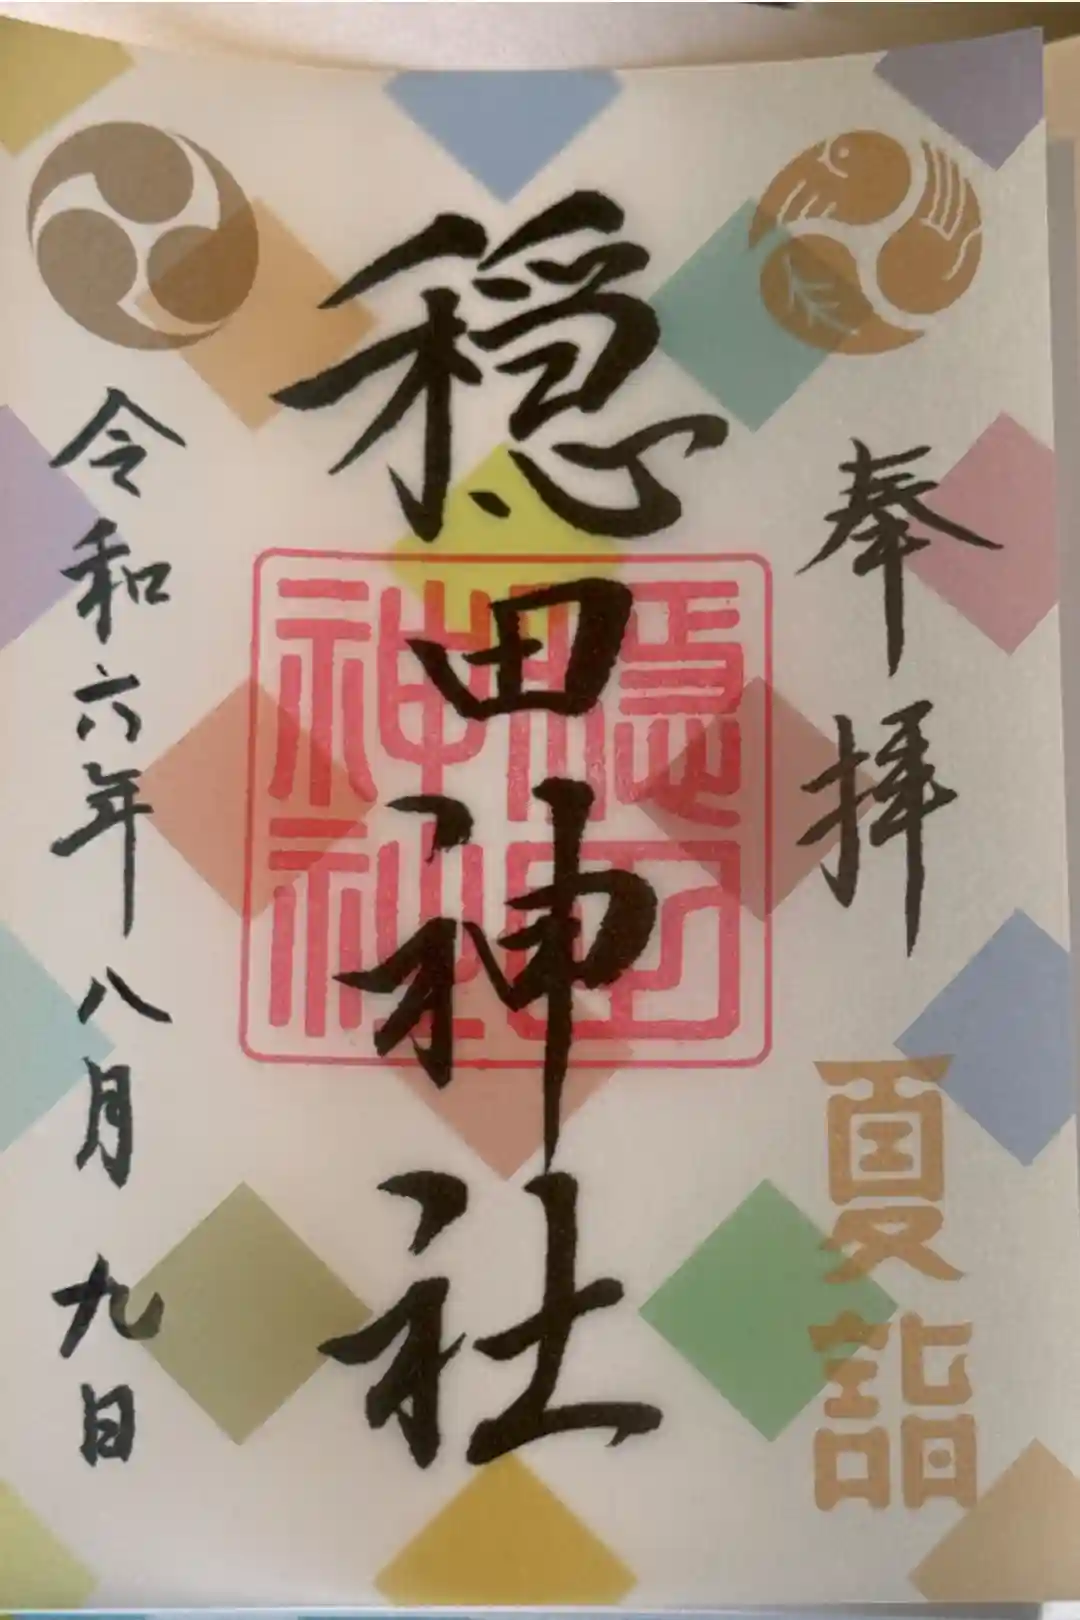 奉拝
夏詣
穏田神社
穏田神社
令和六年八月九日